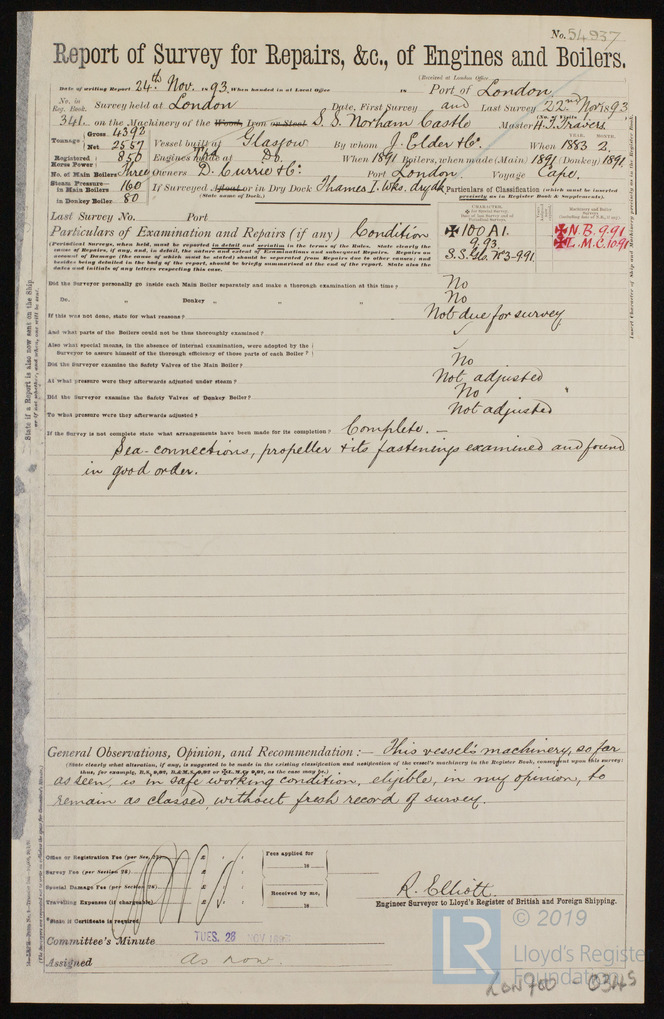 No. 54937
Report of Survey for Repairs, &c., of Engines and Boilers.
(Received at London Office
Date of writing Report 24th Nov. 1893. When handed in at Local Office 18 Port of London
No. in Reg. Book. Survey held at London Date, First Survey and Last Survey 22nd Nov 1893
(No. of Visits
341. on the Machinery of the Wood, Iron or Steel S. S. Norham Castle Master H. T. Travers
Tonnage Gross 4392
Net 2557 Vessel built at Glasgow By whom J. Elder & Co. When 1883 2.
Registered Horse Power 850 Engines made at Do. When 1891 Boilers, when made (Main) 1891 (Donkey) 1891
No. of Main Boilers Three Owners D. Currie & Co. Port London Voyage Cape.
Steam Pressure— in Main Boilers 160 If Surveyed Afloat or in Dry Dock Thames I. Wks. dry dk
(State name of Dock.)
in Donkey Boiler 80
Particulars of Classification (which must be inserted precisely as in Register Book & Supplement).
Last Survey No. Port
Particulars of Examination and Repairs (if any) Condition
✠ 100 A1.
9.93.
S.S. No. 3-9.91
✠ N.B. 9.91
✠ L.M.C. 10.91
(Periodical Surveys, when held, must be reported in detail and seriatim in the terms of the Rules. State clearly the
cause of Repairs, if any, and, in detail, the nature and extent of Examinations and subsequent Repairs. Repairs on
account of Damage (the cause of which must be stated) should be separated from Repairs due to other causes; and
besides being detailed in the body of the report, should be briefly summarised at the end of the report. State also the
dates and initials of any letters respecting this case.
Did the Surveyor personally go inside each Main Boiler separately and make a thorough examination at this time? No
Do. " Donkey " " " No
If this was not done, state for what reasons? Not due for survey
And what parts of the Boilers could not be thus thoroughly examined?
Also what special means, in the absence of internal examination, were adopted by the
Surveyor to assure himself of the thorough efficiency of those parts of each Boiler?
Did the Surveyor examine the Safety Valves of the Main Boiler? No
At what pressure were they afterwards adjusted under steam? Not adjusted
Did the Surveyor examine the Safety Valves of Donkey Boiler? No
To what pressure were they afterwards adjusted? Not adjusted
If the Survey is not complete state what arrangements have been made for its completion? Complete. —
Sea-connections, propeller & its fastenings examined and found
in good order.
General Observations, Opinion, and Recommendation :— This vessel's machinery, so far
(State clearly what alteration, if any, is suggested to be made in the existing classification and notification of the vessel's machinery in the Register Book, consequent upon this survey;
as seen, is in safe working condition, eligible, in my opinion, to
remain as classed, without fresh record of survey.
Office or Registration Fee (per Sec. 27) £ : :
Survey Fee (per Section 28) £ : :
Special Damage Fee (per Section 28) £ : :
Travelling Expenses (if chargeable) £ : :
Fees applied for
18
Received by me,
18
*State if Certificate is required
R. Elliott.
Engineer Surveyor to Lloyd's Register of British and Foreign Shipping.
Committee's Minute TUES. 28 NOV 1893
Assigned as now.
© 2019
LR Lloyd's Register Foundation
LON 700 - 0345
State if a Report is also now sent on the Ship